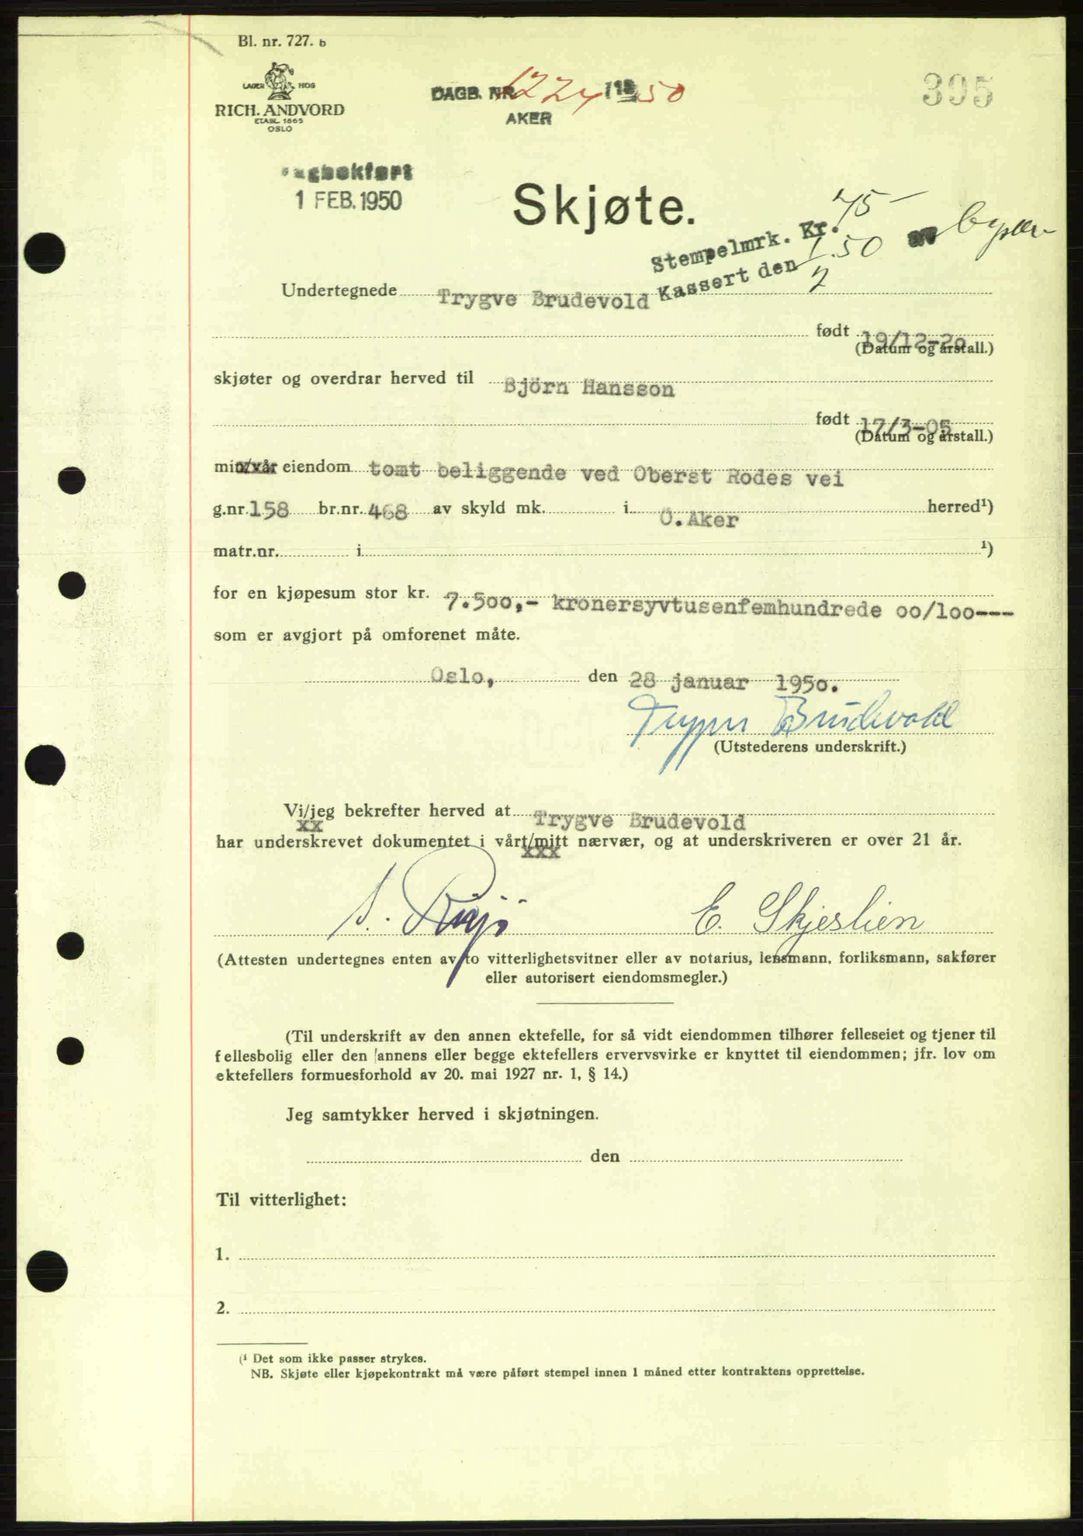 Bl. nr. 727. b
LAGER HOS
RICH. ANDVORD
ETABL. 1865
OSLO
DAGB. NR. 1224/19 50
AKER
305
1 FEB. 1950
Skjøte.
Stempelmrk. Kr. 75-
Kassert den 1/2.50
Undertegnede Trygve Brudevold
født 19/12-20
(Datum og årstall.)
skjøter og overdrar herved til Björn Hansson
født 17/3-05
(Datum og årstall.)
min/vår eiendom tomt beliggende ved Oberst Rodes vei
g.nr. 158 br.nr. 468 av skyld mk. i Ö.Aker herred¹)
matr.nr. i ¹)
for en kjøpesum stor kr. 7.500,- kronersyvtusenfemhundrede oo/loo---
som er avgjort på omforenet måte.
Oslo, den 28 januar 1950.
Trygve Brudevold
(Utstederens underskrift.)
Vi/jeg bekrefter herved at Trygve Brudevold
har underskrevet dokumentet i vårt/mitt nærvær, og at underskriveren er over 21 år.
E. Skjeslien
(Attesten undertegnes enten av to vitterlighetsvitner eller av notarius, lensmann, forliksmann, sakfører
eller autorisert eiendomsmegler.)
(Til underskrift av den annen ektefelle, for så vidt eiendommen tilhører felleseiet og tjener til
fellesbolig eller den annens eller begge ektefellers ervervsvirke er knyttet til eiendommen; jfr. lov om
ektefellers formuesforhold av 20. mai 1927 nr. 1, § 14.)
Jeg samtykker herved i skjøtningen.
den
Til vitterlighet:
1.
2.
(¹ Det som ikke passer strykes.
NB. Skjøte eller kjøpekontrakt må være påført stempel innen 1 måned etter kontraktens opprettelse.